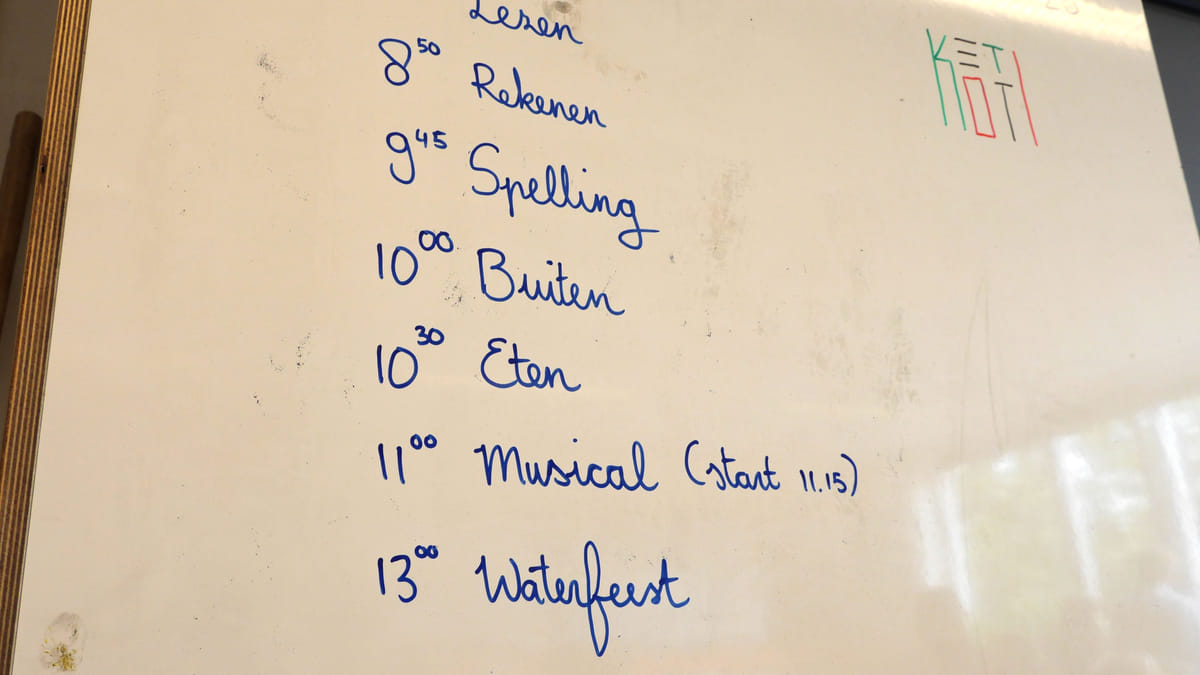 Lezen
8⁵⁰ Rekenen
9⁴⁵ Spelling
10⁰⁰ Buiten
10³⁰ Eten
11⁰⁰ Musical (start 11.15)
13⁰⁰ Waterfeest
KETI
KOTI